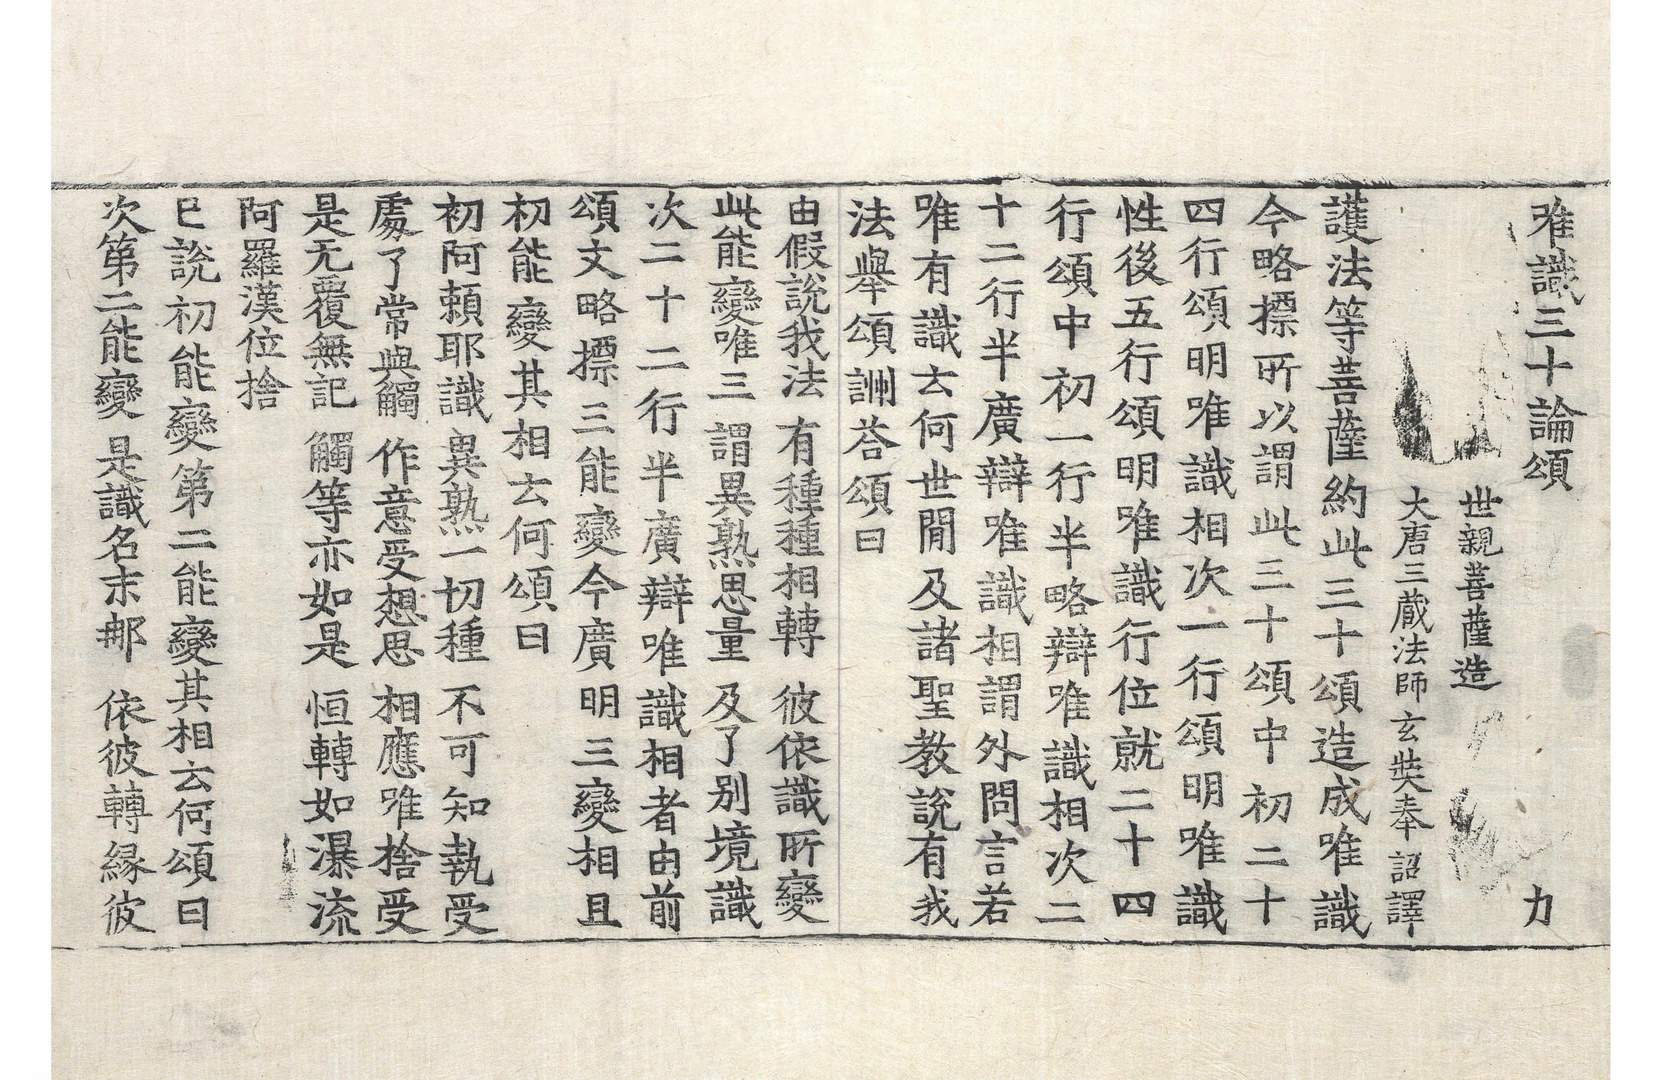 唯識三十論頌　力
世親菩薩造
大唐三蔵法師玄奘奉詔譯
護法等菩薩約此三十頌造成唯識
今略摽所以謂此三十頌中初二十
四行頌明唯識相次一行頌明唯識
性後五行頌明唯識行位就二十四
行頌中初一行半略辯唯識相次二
十二行半廣辯唯識相謂外問言若
唯有識云何世間及諸聖教說有我
法舉頌詶荅頌曰
由假說我法　有種種相轉　彼依識所變
此能變唯三　謂異熟思量　及了別境識
次二十二行半廣辯唯識相者由前
頌文略摽三能變今廣明三變相且
初能變其相云何頌曰
初阿頼耶識　異熟一切種　不可知執受
處了常與觸　作意受想思　相應唯捨受
是无覆無記　觸等亦如是　恒轉如瀑流
阿羅漢位捨
已說初能變第二能變其相云何頌曰
次第二能變　是識名末那　依彼轉縁彼